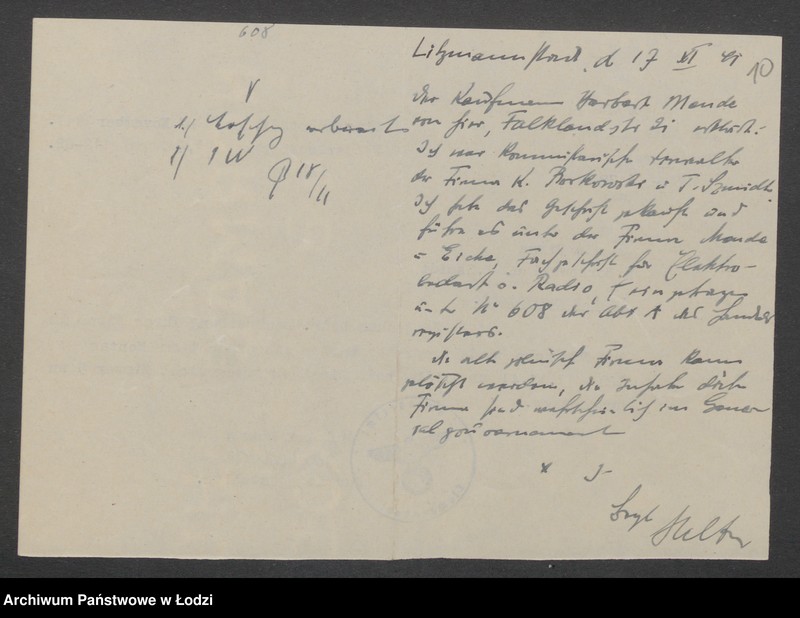 608
10
V
1/
2/ z W
18/11
Litzmannstadt, d 17 XI 41
Der Kaufmann Herbert Mende
von hier, Falklandstr 21 erklärt:
Ich war kommissarischer Verwalter
der Firma K. Borkowski u T. Szmidt.
Ich habe das Geschäft gekauft und
führe es unter der Firma Mende
u Eicke, Fachgeschäft für Elektro-
bedarf u. Radio, eingetragen
unter No 608 der Abt A des Handels
registers.
Die alte polnische Firma kann
gelöscht werden, die Inhaber dieser
Firma sind wahrscheinlich im Gener
algouvernement
Archiwum Państwowe w Łodzi